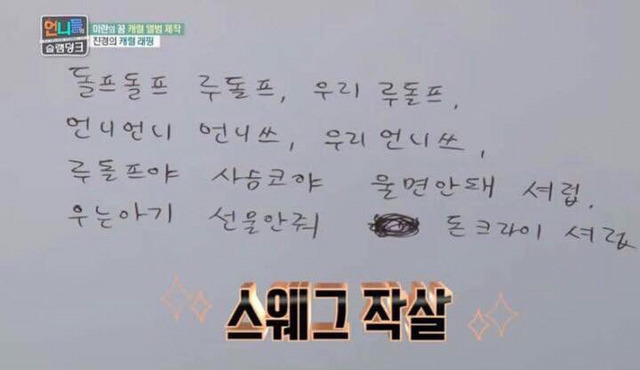 언니들의 슬램덩크
미란의 꿈 캐럴 앨범 제작
진경의 캐럴 래핑
돌프돌프 루돌프, 우리 루돌프,
언니언니 언니쓰, 우리언니쓰,
루돌프야 사슴코야 울면안돼 셔럽.
우는아기 선물안줘 돈크라이 셔럽
스웨그 작살